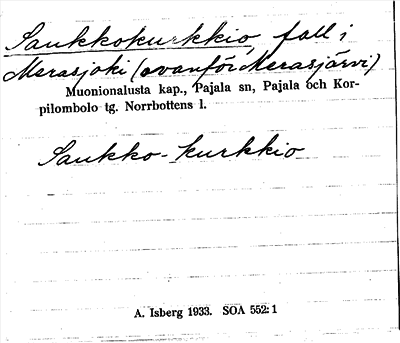 Saukkokurkkio, fall i
Merasjoki (ovanför Merasjärvi)
Muonionalusta kap., Pajala sn, Pajala och Kor-
pilombolo tg. Norrbottens l.
Saukko-kurkkio
A. Isberg 1933. SOA 552:1